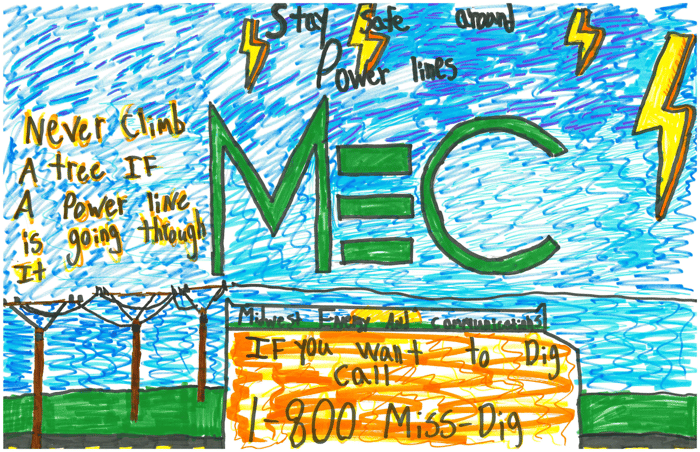 Stay safe around
Power lines
Never Climb
A tree IF
A Power line
is going through
It
MEC
Midwest Energy And Communications
IF you want to Dig
call
1-800 Miss-Dig